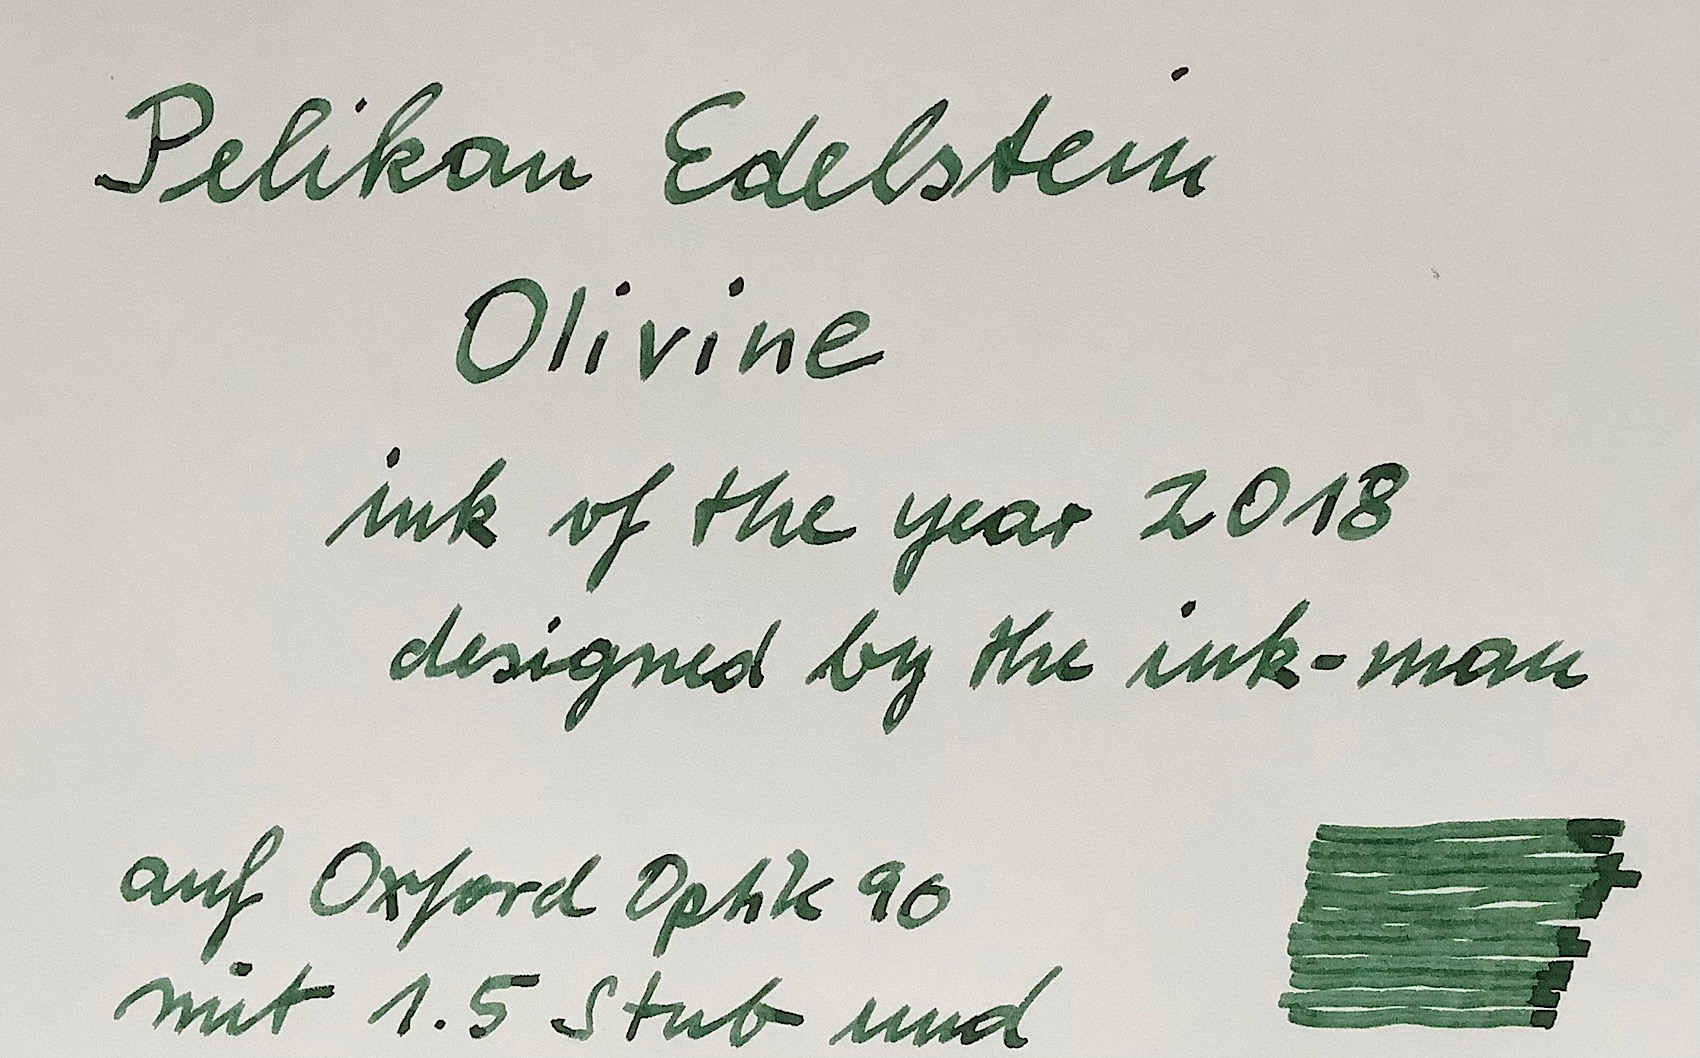 Pelikan Edelstein
Olivine
ink of the year 2018
designed by the ink-man
auf Oxford Optik 90
mit 1.5 Stub und